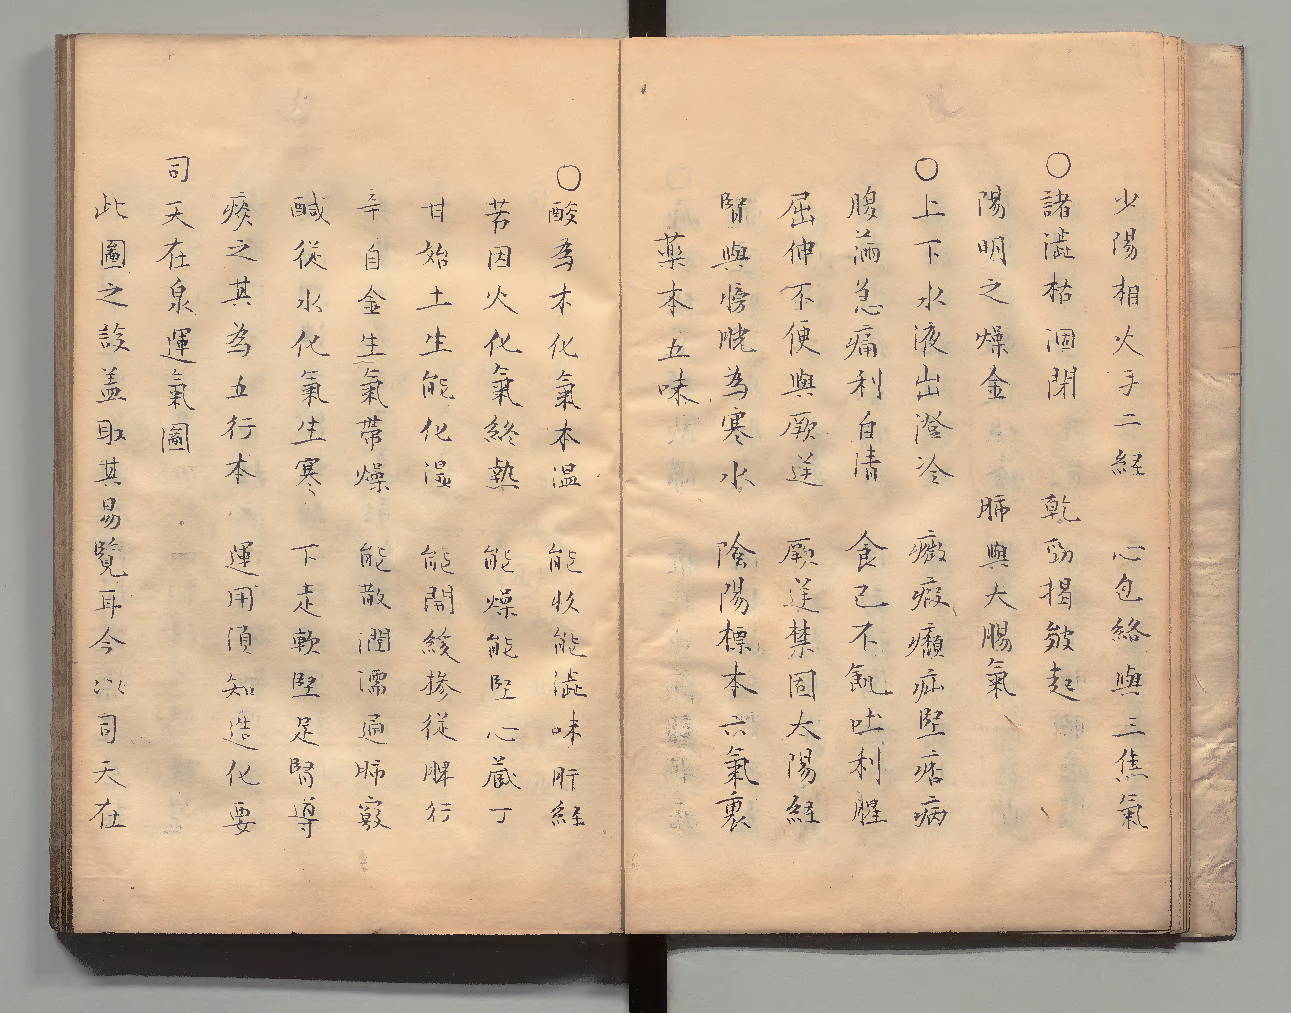 少陽相火手二経　心包絡與三焦氣
〇諸澁枯涸閉　乾勁揭皴起
陽明之燥金　肺與大腸氣
〇上下水液出澄冷　癥瘕㿗疝堅痞病
腹満急痛利白清　食已不飢吐利腥
屈伸不便與厥逆　厥逆禁固太陽経
腎與膀胱為寒水　陰陽標本六氣裏
薬本五味
〇酸為木化氣本温　能收能澁味肝経
苦因火化氣終熱　能燥能堅心蔵丁
甘始土生能化湿　能開緩滲従脾行
辛自金生氣帯燥　能散潤濡通肺竅
鹹従水化氣生寒　下走軟堅足腎導
之其為五行本　運用須知造化要
司天在泉運氣圖
此圖之設盖取其易覽耳今以司天在